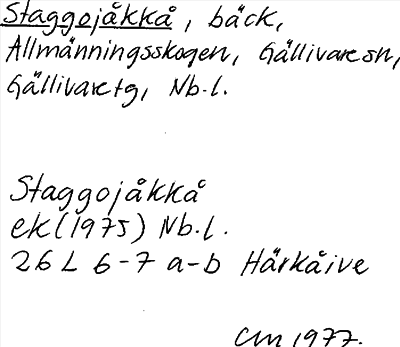 Staggojåkkå, bäck,
Allmänningsskogen, Gällivare sn,
Gällivare tg, Nb.l.
Staggojåkkå
ek (1975) Nb.l.
26 L 6-7 a-b Härkåive
CM 1977.